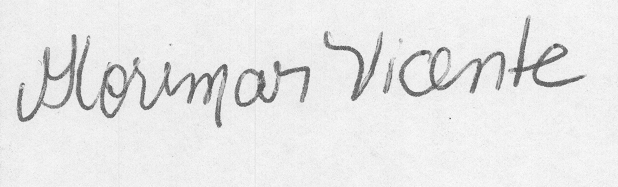 Glorimar Vicente